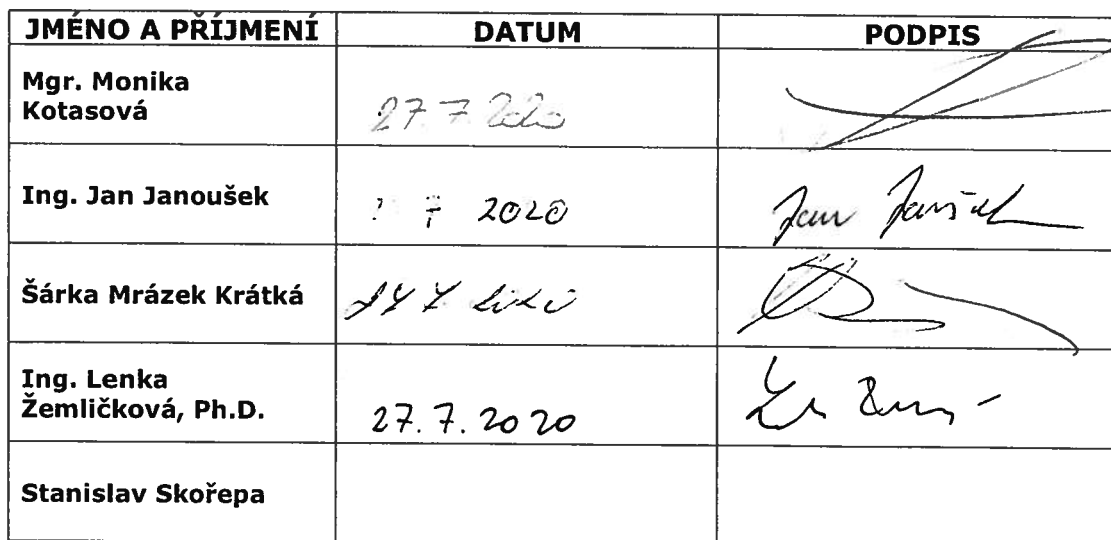 JMÉNO A PŘÍJMENÍ DATUM PODPIS
Mgr. Monika
Kotasová
27. 7. 2020
Ing. Jan Janoušek 7 2020 Jan
Šárka Mrázek Krátká
Ing. Lenka
Žemličková, Ph.D.
27. 7. 2020
Stanislav Skořepa